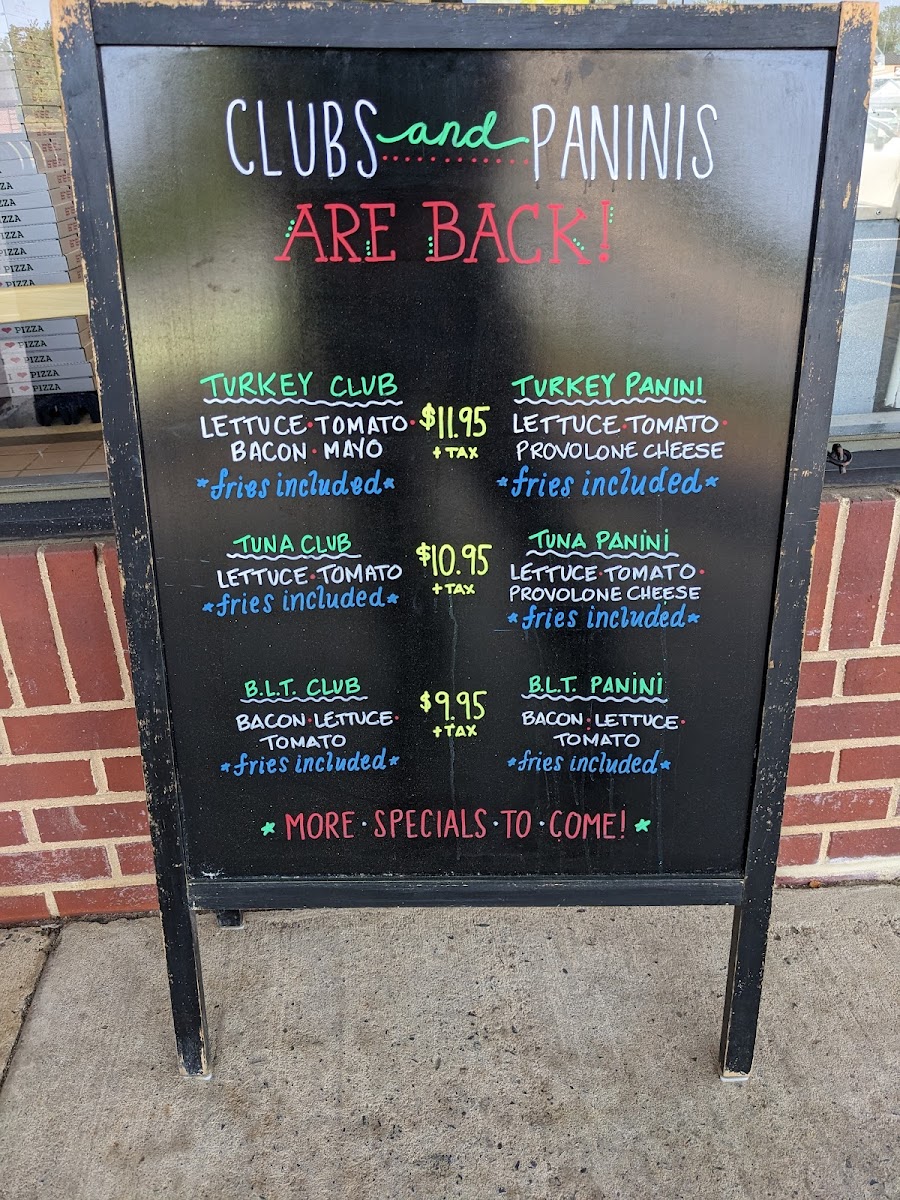 CLUBS and PANINIS
ARE BACK!
TURKEY CLUB
LETTUCE · TOMATO ·
BACON · MAYO
*fries included*
$11.95
+ TAX
TURKEY PANINI
LETTUCE · TOMATO ·
PROVOLONE CHEESE
*fries included*
TUNA CLUB
LETTUCE · TOMATO
*fries included*
$10.95
+ TAX
TUNA PANINI
LETTUCE · TOMATO ·
PROVOLONE CHEESE
*fries included*
B.L.T. CLUB
BACON · LETTUCE ·
TOMATO
*fries included*
$9.95
+ TAX
B.L.T. PANINI
BACON · LETTUCE ·
TOMATO
*fries included*
* MORE · SPECIALS · TO · COME! *
PIZZA
PIZZA
PIZZA
PIZZA
PIZZA